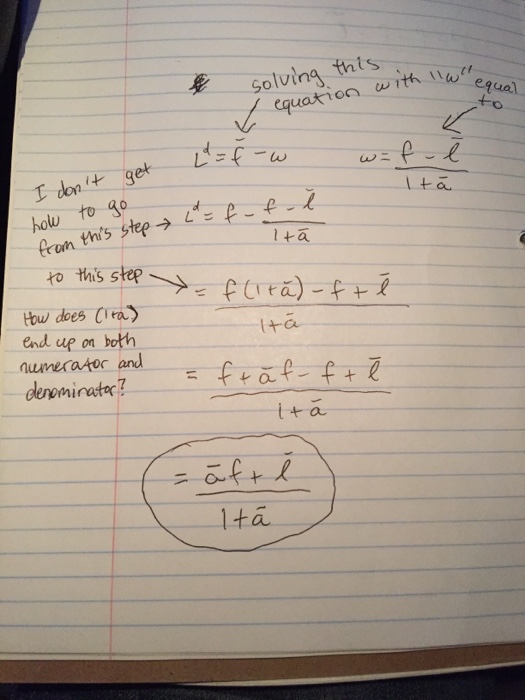 solving this
equation with "w" equal
to
L^d = f̄ - w
w = f - l̄ / 1 + ā
I don't get
how to go
from this step →
L^d = f - f - l̄ / 1 + ā
to this step
= f(1+ā) - f + l̄ / 1 + ā
How does (1+a)
end up on both
numerator and
denominator?
= f + āf - f + l̄ / 1 + ā
= āf + l̄ / 1 + ā